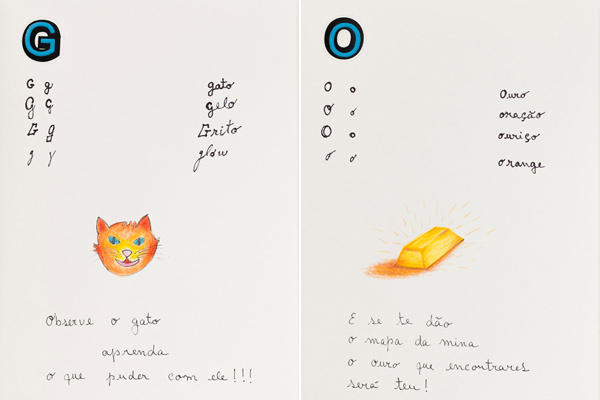 G
G g gato
G g gelo
G g Grito
g g glow
Observe o gato
aprenda
o que puder com ele!!!
O
O o Ouro
O o oração
O o ouriço
o o orange
E se te dão
o mapa da mina
o ouro que encontrares
será teu!